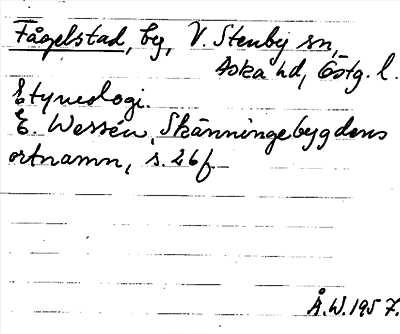 Fågelstad, by, V. Stenby sn,
Aska hd, Östg. l.
Etymologi.
E. Wessén, Skänningebygdens
ortnamn, s. 26f
Å.W. 1957.